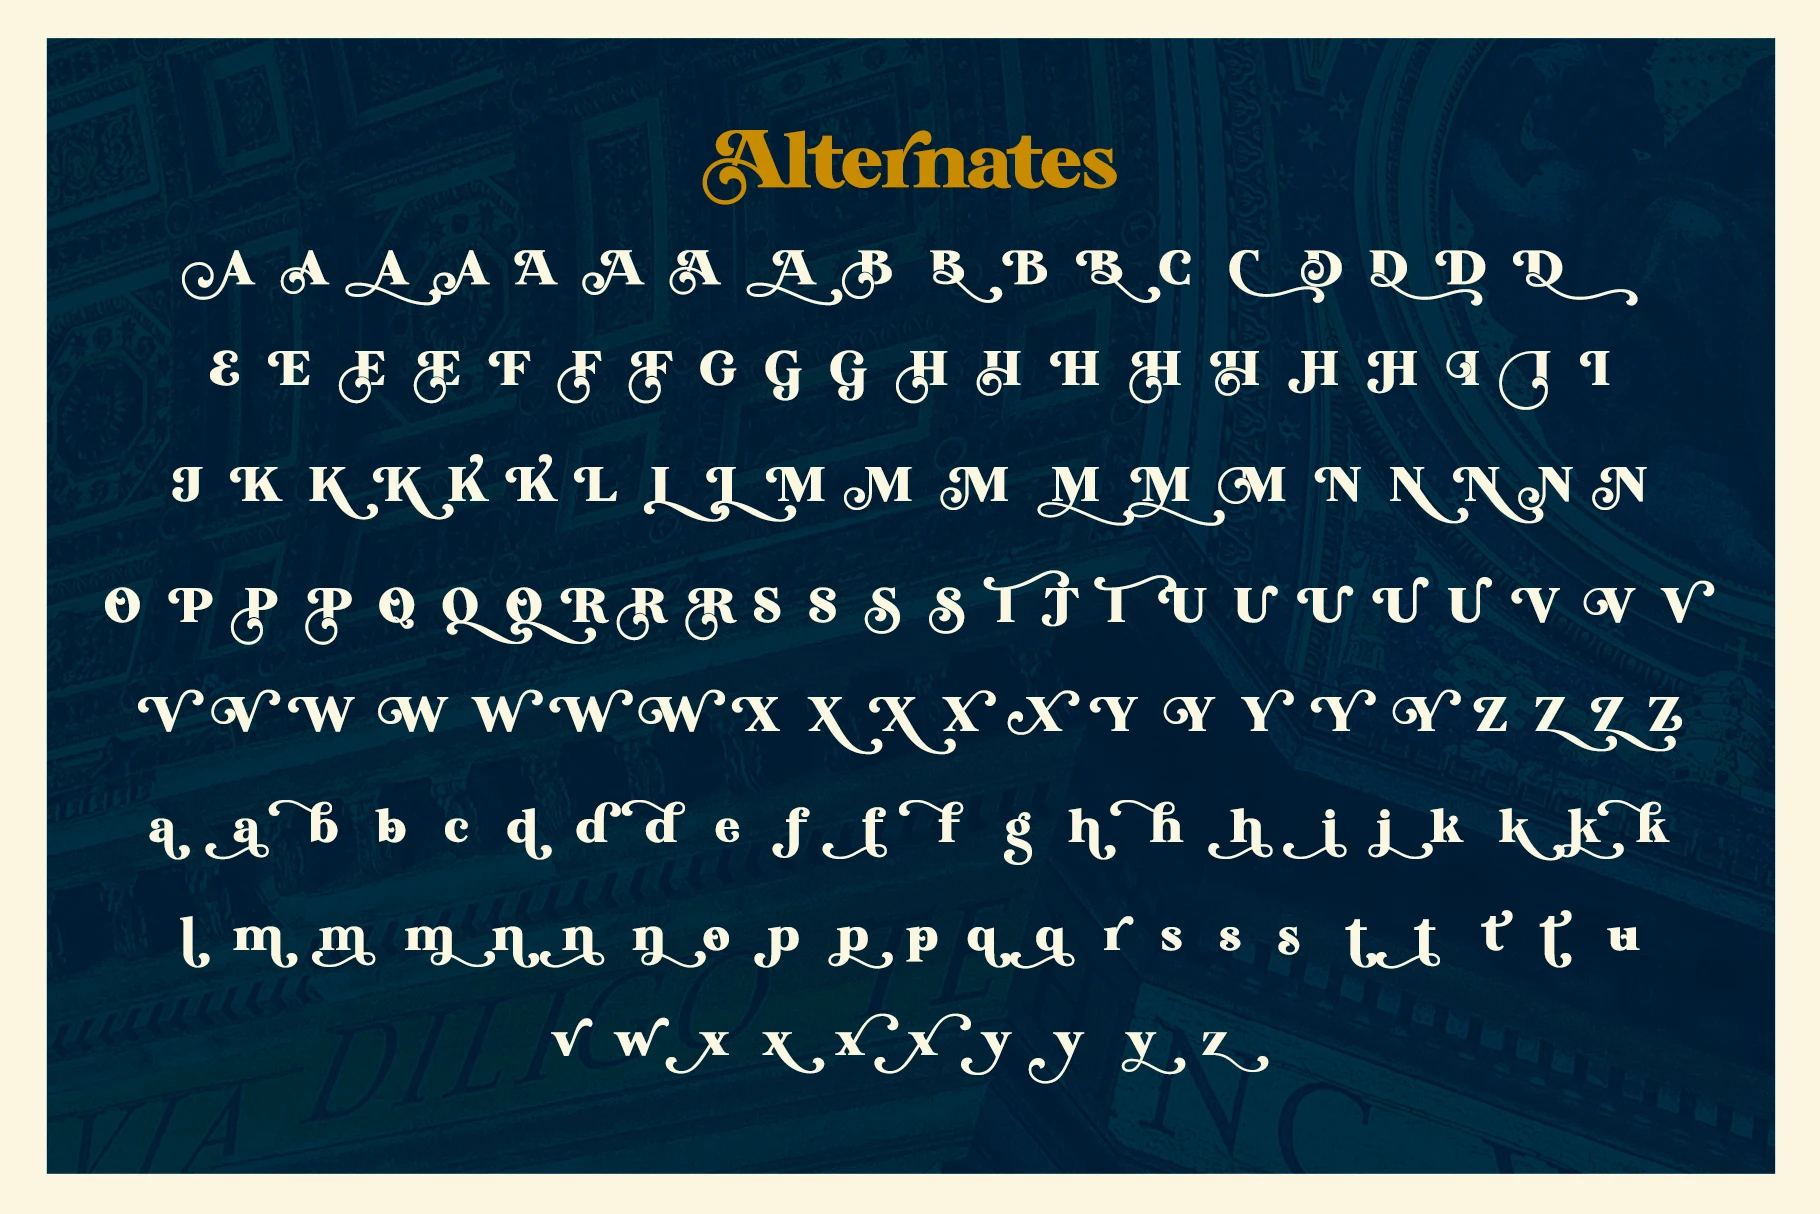 Alternates
A A A A A A A A B B B B C C D D D D
E E E E F F F G G G H H H H H H H I I I
J K K K K K L L L M M M M M M N N N N N
O P P P Q Q Q R R R S S S S T T T U U U U U V V V
V V W W W W W X X X X X Y Y Y Y Y Z Z Z Z
a a b b c d d d e f f f g h h h i j k k k k
l m m m n n n o p p p q q r s s s t t t t u
v w x x x x y y y z
VIA DILICO TE
NC